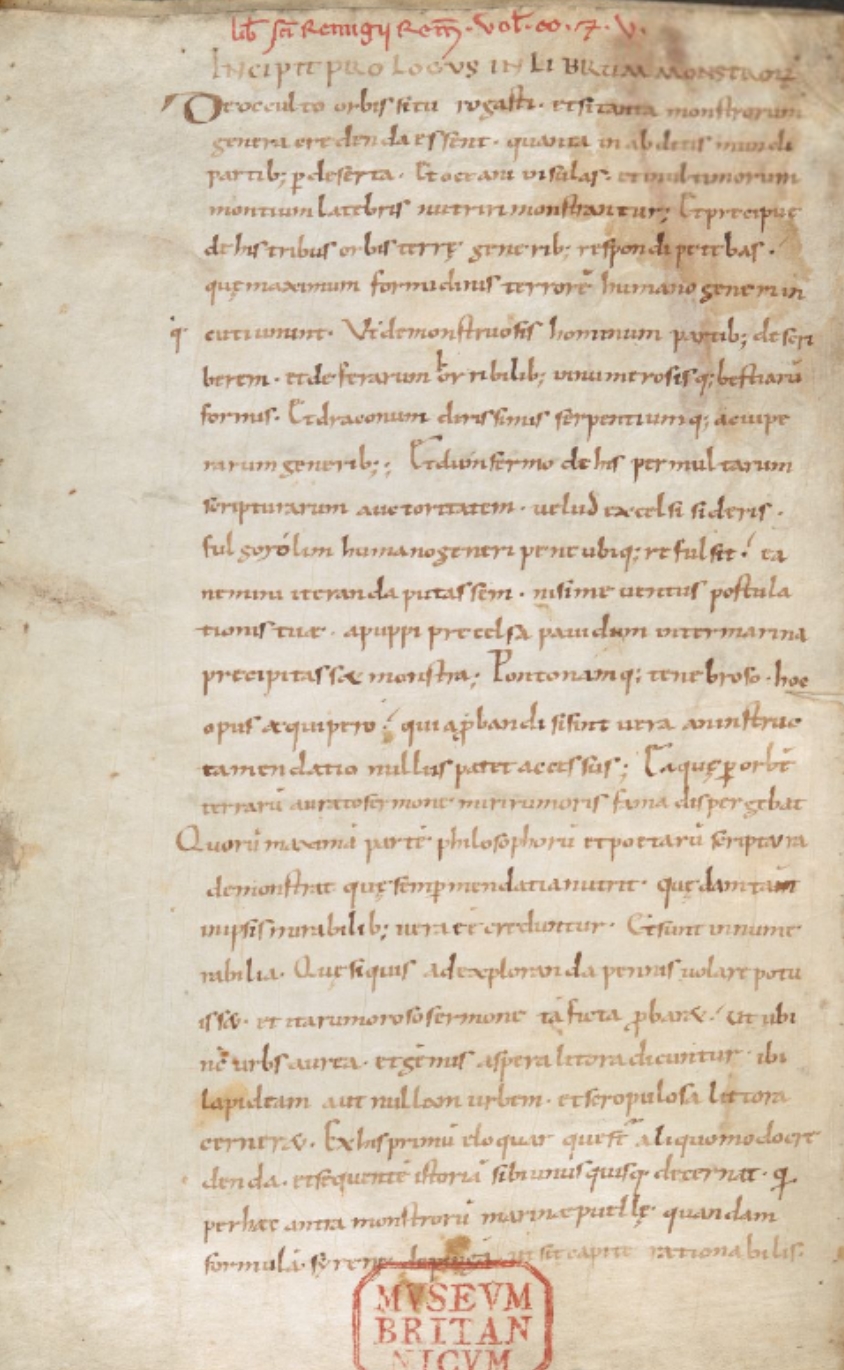 lib̄ sc̄i Remigij Rem̄. vol̄. co. 7. V.
INCIPIT PROLOGUS IN LIBRUM MONSTRORŪ
De occulto orbis situ rogasti. et si tanta monstrorum
genera credenda essent. quanta in abditis mundi
partib; p̱ deserta. Et oceani insulas. et in ultimorum
montium latebris nutriri monstrantur; Et precipuę
de his tribus orbis terrę generib; respondi petebas.
quę maximum formidinis terrorē humano generi in
cutiunt. Vt de monstruosis hominum partib; descri
berem. et de ferarum horribilib; innumerosisq; bestiarū
formis. Et draconum dirissimis serpentiumq; ac uipe
rarum generib;; Et dum sermo de his permultarum
scripturarum auctoritatem. uelud excelsi sideris.
fulgor olim humano generi pene ubiq; refulsit. ea
nemini iteranda putassem. nisi me uentus postula
tionis tuæ. a puppi precelsa pauidum inter marina
precipitassæ monstra; Ponto namq; tenebroso. hoc
opus æquipero. qui a p̱bandi si sint uera an instruc
ta mendatio nullus patet accessus; Ea quę p̱ orbē
terrarū aurato sermone miri rumoris fama dispergebat
Quorū maximā partē philosophorū et poetarū scriptura
demonstrat quę semp̱ mendatia nutrit. quędam tam̄
in ipsis mirabilib; uera eē creduntur. Et sunt innume
rabilia. Quę si quis ad exploranda pennis uolare potu
issæ. et ita rumoroso sermone tā ficta p̱baræ. ut ubi
nc̄ urbs aurea. et gēmis aspera litora dicuntur. ibi
lapideam aut nullam urbem. et scropulosa littora
cerneræ. Ex his primū eloquar quę st̄ aliquo modo cre
denda. et sequentē istoriā sibi unusquisq; decernat. q̄
per hæc antra monstrorū marinæ puellę. quandam
formulā. syrene depingā ut sit capite rationabilis.
MVSEVM
BRITAN
NICVM